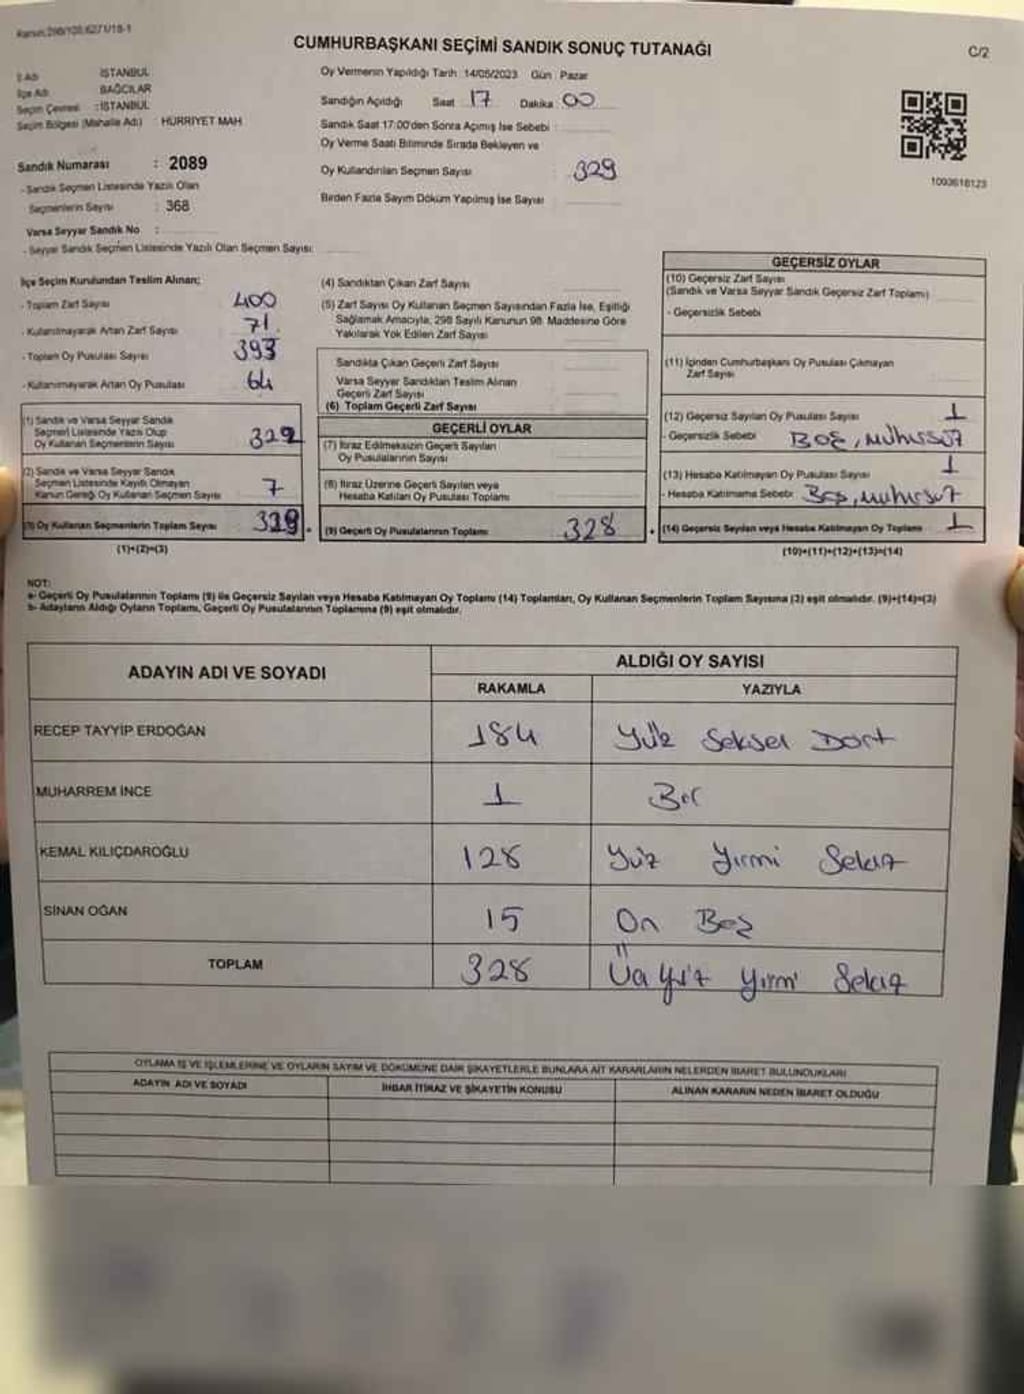 CUMHURBAŞKANI SEÇİMİ SANDIK SONUÇ TUTANAĞI
C/2
İl Adı İSTANBUL
İlçe Adı BAĞCILAR
Seçim Çevresi : İSTANBUL
Seçim Bölgesi (Mahalle Adı) : HÜRRİYET MAH.
Sandık Numarası : 2089
- Sandık Seçmen Listesinde Yazılı Olan
Seçmenlerin Sayısı : 368
Varsa Seyyar Sandık No :
- Seyyar Sandık Seçmen Listesinde Yazılı Olan Seçmen Sayısı:
Oy Vermenin Yapıldığı Tarih : 14/05/2023 Gün : Pazar
Sandığın Açıldığı Saat 17 Dakika 00
Sandık Saat 17:00'den Sonra Açılmış İse Sebebi :
Oy Verme Saati Bitiminde Sırada Bekleyen ve
Oy Kullandırılan Seçmen Sayısı : 329
Birden Fazla Sayım Döküm Yapılmış İse Sayısı :
1093618123
İlçe Seçim Kurulundan Teslim Alınan;
- Toplam Zarf Sayısı 400
- Kullanılmayarak Artan Zarf Sayısı 71
- Toplam Oy Pusulası Sayısı 393
- Kullanılmayarak Artan Oy Pusulası 64
(1) Sandık ve Varsa Seyyar Sandık
Seçmen Listesinde Yazılı Olup
Oy Kullanan Seçmenlerin Sayısı 322
(2) Sandık ve Varsa Seyyar Sandık
Seçmen Listesinde Kayıtlı Olmayan
Kanun Gereği Oy Kullanan Seçmen Sayısı 7
(3) Oy Kullanan Seçmenlerin Toplam Sayısı 329
(1)+(2)=(3)
(4) Sandıktan Çıkan Zarf Sayısı
(5) Zarf Sayısı Oy Kullanan Seçmen Sayısından Fazla İse, Eşitliği
Sağlamak Amacıyla, 298 Sayılı Kanunun 98. Maddesine Göre
Yakılarak Yok Edilen Zarf Sayısı
Sandıkta Çıkan Geçerli Zarf Sayısı
Varsa Seyyar Sandıktan Teslim Alınan
Geçerli Zarf Sayısı
(6) Toplam Geçerli Zarf Sayısı
GEÇERLİ OYLAR
(7) İtiraz Edilmeksizin Geçerli Sayılan
Oy Pusulalarının Sayısı
(8) İtiraz Üzerine Geçerli Sayılan veya
Hesaba Katılan Oy Pusulası Toplamı
(9) Geçerli Oy Pusulalarının Toplamı 328
GEÇERSİZ OYLAR
(10) Geçersiz Zarf Sayısı
(Sandık ve Varsa Seyyar Sandık Geçersiz Zarf Toplamı)
- Geçersizlik Sebebi
(11) İçinden Cumhurbaşkanı Oy Pusulası Çıkmayan
Zarf Sayısı
(12) Geçersiz Sayılan Oy Pusulası Sayısı 1
- Geçersizlik Sebebi
(13) Hesaba Katılmayan Oy Pusulası Sayısı 1
- Hesaba Katılmama Sebebi
(14) Geçersiz Sayılan veya Hesaba Katılmayan Oy Toplamı 1
(10)+(11)+(12)+(13)=(14)
NOT:
a- Geçerli Oy Pusulalarının Toplamı (9) ile Geçersiz Sayılan veya Hesaba Katılmayan Oy Toplamı (14) Toplamları, Oy Kullanan Seçmenlerin Toplam Sayısına (3) eşit olmalıdır. (9)+(14)=(3)
b- Adayların Aldığı Oyların Toplamı, Geçerli Oy Pusulalarının Toplamına (9) eşit olmalıdır.
ADAYIN ADI VE SOYADI
ALDIĞI OY SAYISI
RAKAMLA YAZIYLA
RECEP TAYYİP ERDOĞAN 184 Yüz Seksen Dört
MUHARREM İNCE 1 Bir
KEMAL KILIÇDAROĞLU 128 Yüz Yirmi Sekiz
SİNAN OĞAN 15 On Beş
TOPLAM 328 Üç Yüz Yirmi Sekiz
OYLAMA İŞ VE İŞLEMLERİNE VE OYLARIN SAYIM VE DÖKÜMÜNE DAİR ŞİKAYETLERLE BUNLARA AİT KARARLARIN NELERDEN İBARET BULUNDUKLARI
ADAYIN ADI VE SOYADI İHBAR İTİRAZ VE ŞİKAYETİN KONUSU ALINAN KARARIN NEDEN İBARET OLDUĞU